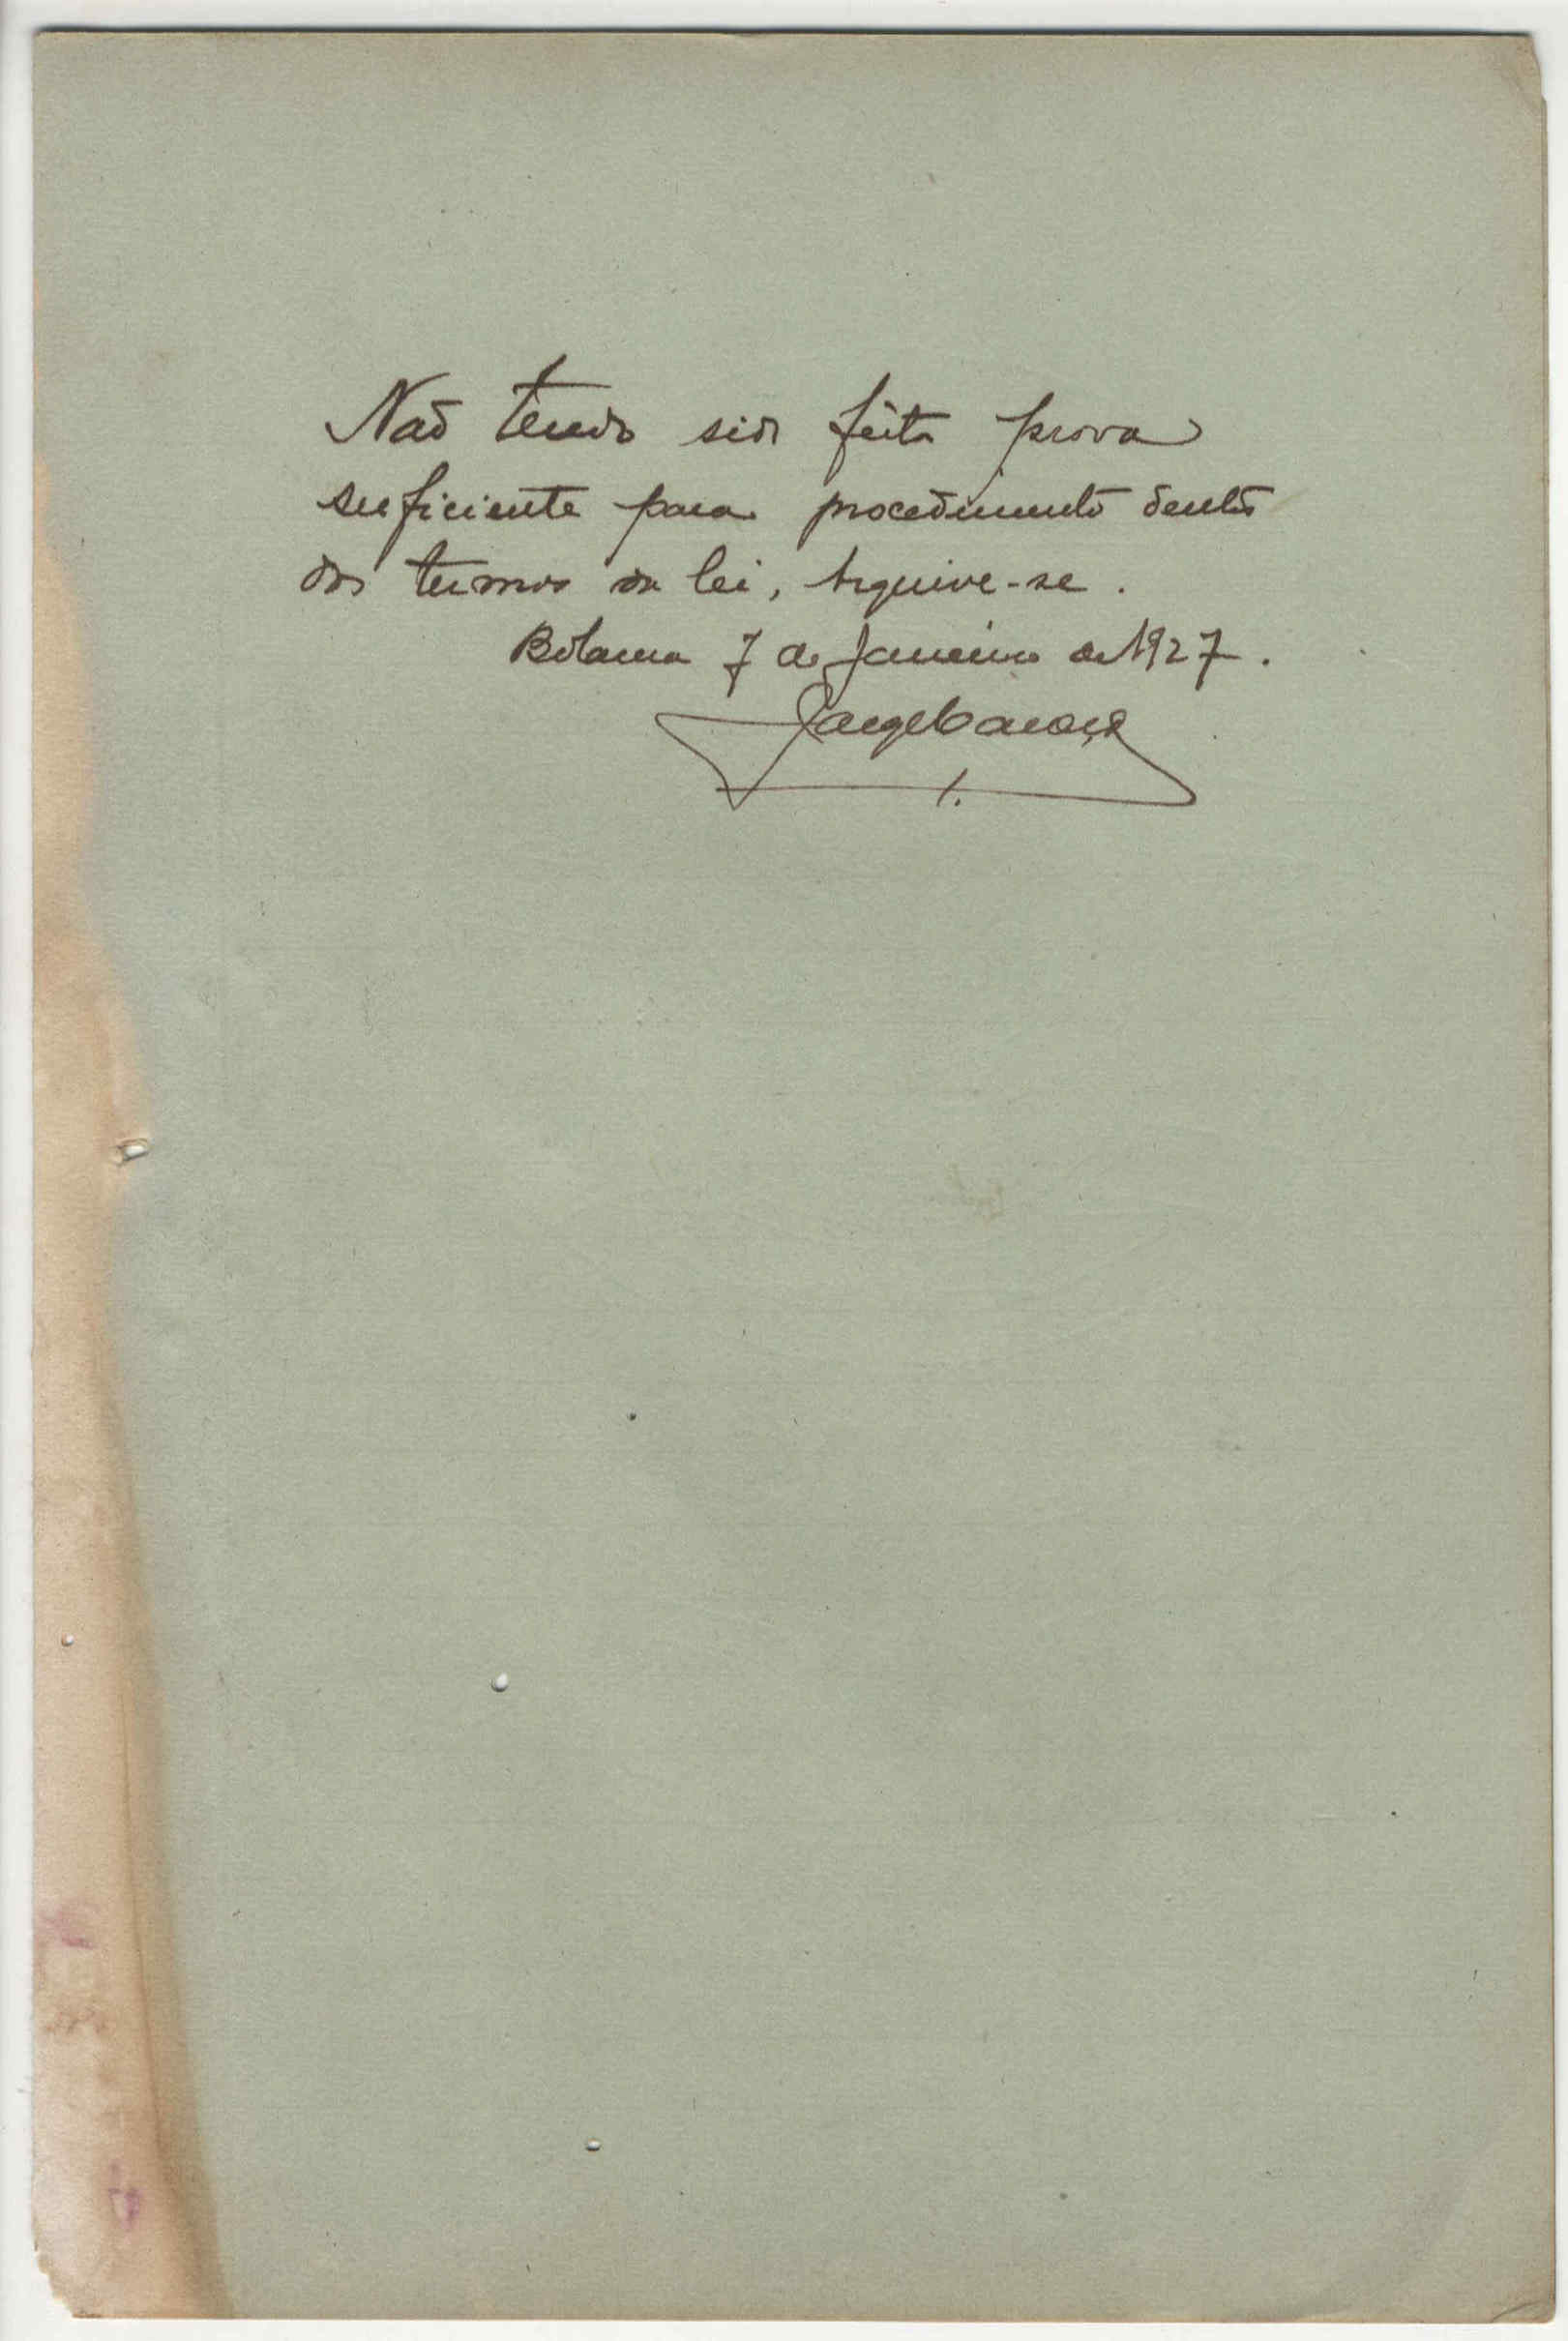 Não tendo sido feita prova
suficiente para procedimento dentro
dos termos da lei, Arquive-se.
Bolama 7 de Janeiro de 1927.